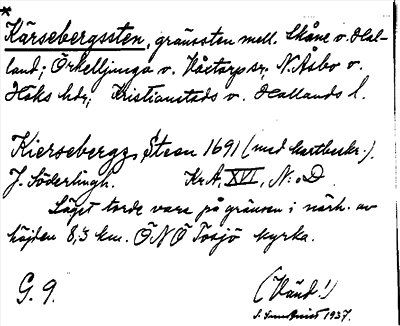 *
Kärsebergssten, gränssten mell. Skåne o. Hal-
land; Örkelljunga o. Våxtorp sr, N. Åsbo o.
Höks hdr; Kristianstads o. Hallands l.
Kiersebergz Steen 1691 (med kartbeskr.).
J. Söderlingh. KrA, XVI, N:o D
Läget torde vara på gränsen i närh. av
höjden 8,3 km. ÖNÖ Tosjö kyrka.
G. 9. (Vänd!)
1937.